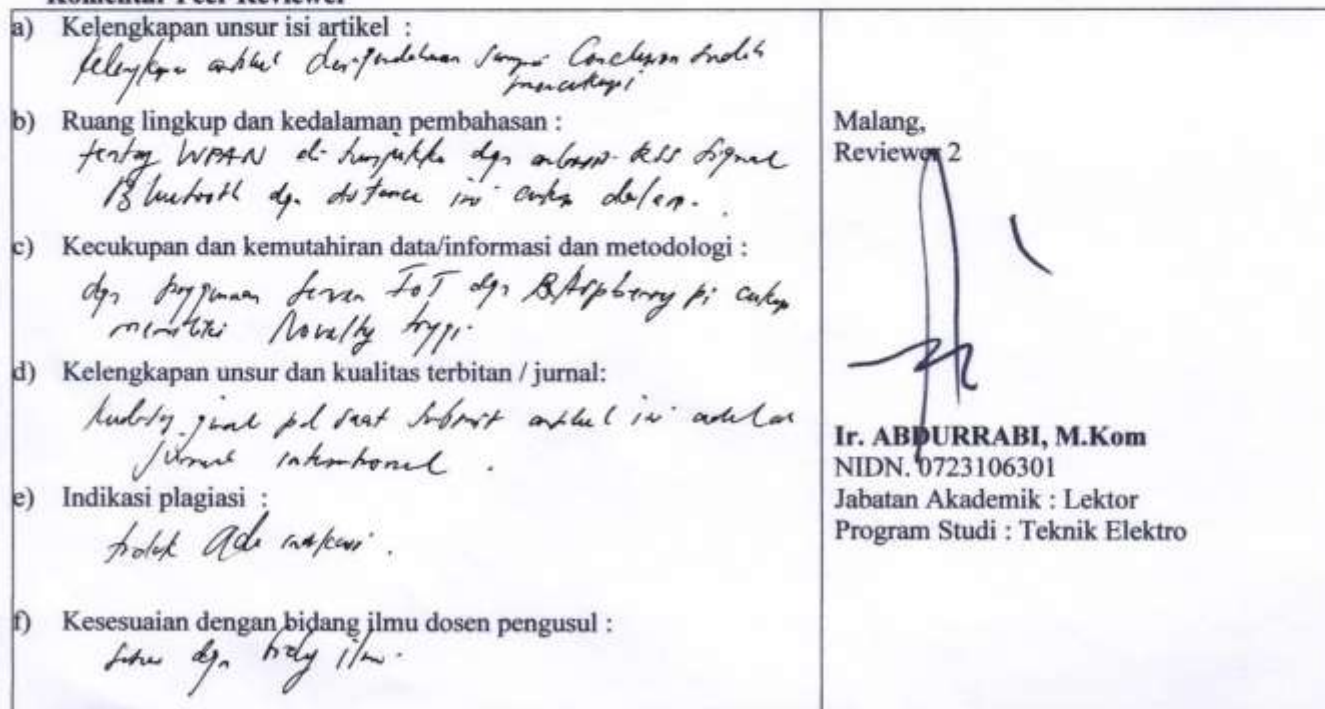 Komentar Peer Reviewer
a) Kelengkapan unsur isi artikel :
artikel dari pendahuluan sampai Conclusion sudah
mencakupi
b) Ruang lingkup dan kedalaman pembahasan :
tentang WPAN di dgn RSS Signal
Bluetooth dgn distance ini cukup dalam.
c) Kecukupan dan kemutahiran data/informasi dan metodologi :
dgn penggunaan IoT dgn Raspberry pi cukup
memiliki Novelty tinggi.
d) Kelengkapan unsur dan kualitas terbitan / jurnal:
pd saat Submit artikel ini adalah
jurnal internasional .
e) Indikasi plagiasi :
tidak Ada indikasi .
f) Kesesuaian dengan bidang ilmu dosen pengusul :
sesuai dgn bidang ilmu.
Malang,
Reviewer 2
Ir. ABDURRABI, M.Kom
NIDN. 0723106301
Jabatan Akademik : Lektor
Program Studi : Teknik Elektro